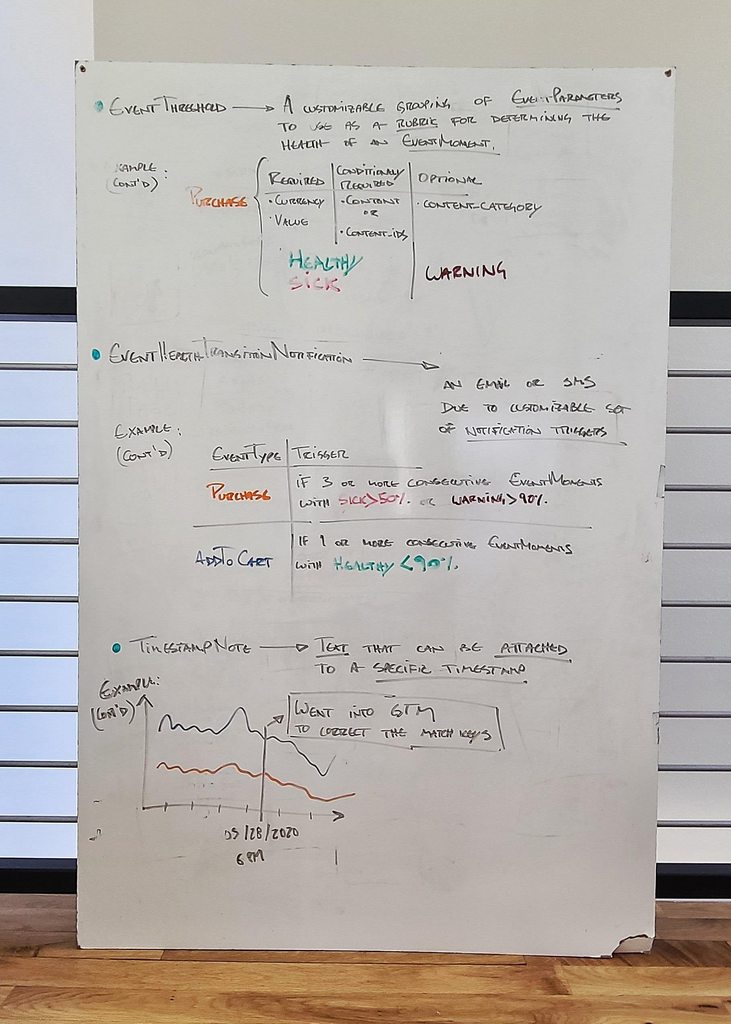 EVENTTHRESHOLD → A CUSTOMIZABLE GROUPING OF EVENTPARAMETERS
TO USE AS A RUBRIC FOR DETERMINING THE
HEALTH OF AN EVENTMOMENT.
EXAMPLE:
(CONT'D)
PURCHASE
REQUIRED
• CURRENCY
• VALUE
CONDITIONALLY
REQUIRED
• CONTENT
OR
• CONTENT_IDS
OPTIONAL
• CONTENT_CATEGORY
HEALTHY
SICK
WARNING
EVENTHEALTHTRANSITIONNOTIFICATION →
AN EMAIL OR SMS
DUE TO CUSTOMIZABLE SET
OF NOTIFICATION TRIGGERS
EXAMPLE:
(CONT'D)
EVENTTYPE TRIGGER
PURCHASE
IF 3 OR MORE CONSECUTIVE EVENTMOMENTS
WITH SICK>50% OR WARNING>90%.
ADDTOCART
IF 1 OR MORE CONSECUTIVE EVENTMOMENTS
WITH HEALTHY <90%.
TIMESTAMPNOTE → TEXT THAT CAN BE ATTACHED
TO A SPECIFIC TIMESTAMP
EXAMPLE:
(CONT'D)
WENT INTO GTM
TO CORRECT THE MATCH KEYS
05/28/2020
6PM